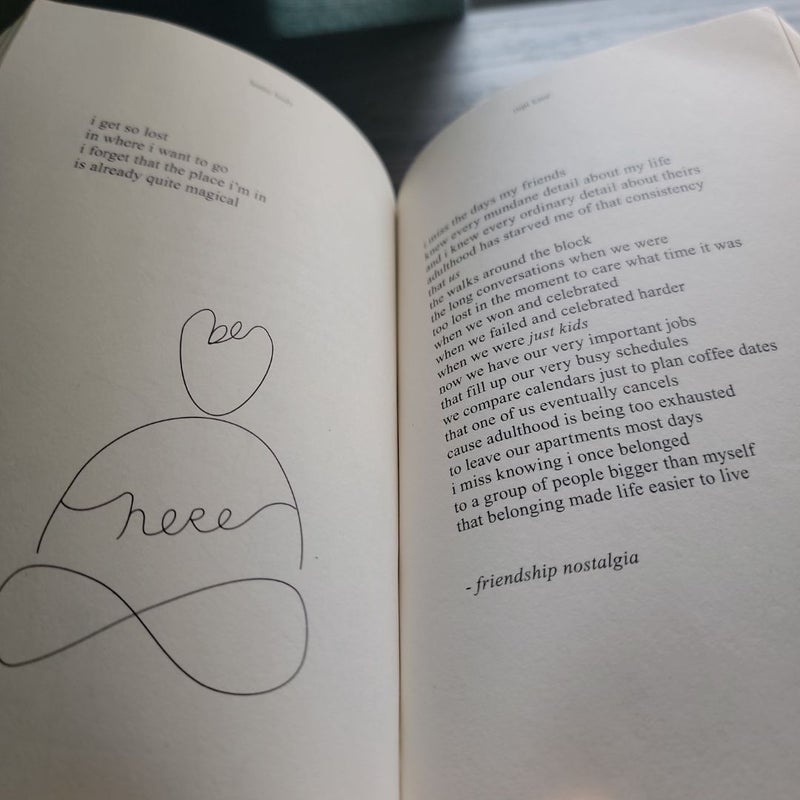 i get so lost
in where i want to go
i forget that the place i'm in
is already quite magical
be
here
i miss the days my friends
knew every mundane detail about my life
and i knew every ordinary detail about theirs
adulthood has starved me of that consistency
that us
the walks around the block
the long conversations when we were
too lost in the moment to care what time it was
when we won and celebrated
when we failed and celebrated harder
when we were just kids
now we have our very important jobs
that fill up our very busy schedules
we compare calendars just to plan coffee dates
that one of us eventually cancels
cause adulthood is being too exhausted
to leave our apartments most days
i miss knowing i once belonged
to a group of people bigger than myself
that belonging made life easier to live
- friendship nostalgia